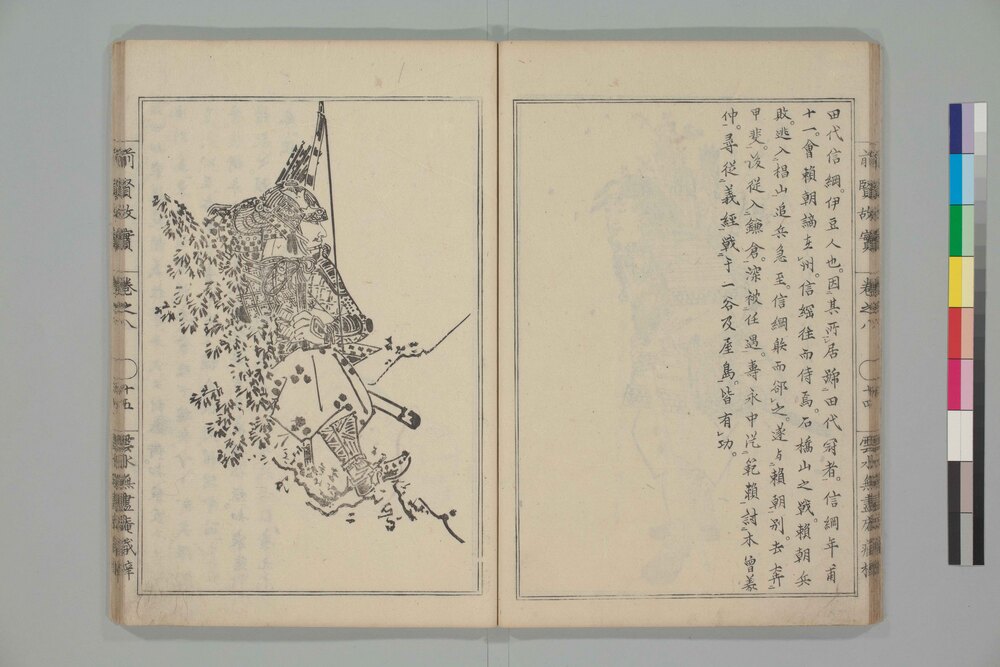 田代信綱。伊豆人也。因其所居號田代冠者。信綱年甫
十一。會賴朝謫在州。信綱往而侍焉。石橋山之戰。賴朝兵
敗。逃入椙山追兵急至。信綱射而郤之。遂与賴朝別去奔
甲斐。後從入鎌倉。深被任遇。壽永中從範賴討木曾義
仲。尋從義經戰于一谷及屋島。皆有功。
前賢故實 卷之八 十四
前賢故實 卷之八 十五 雲水無盡庵藏梓